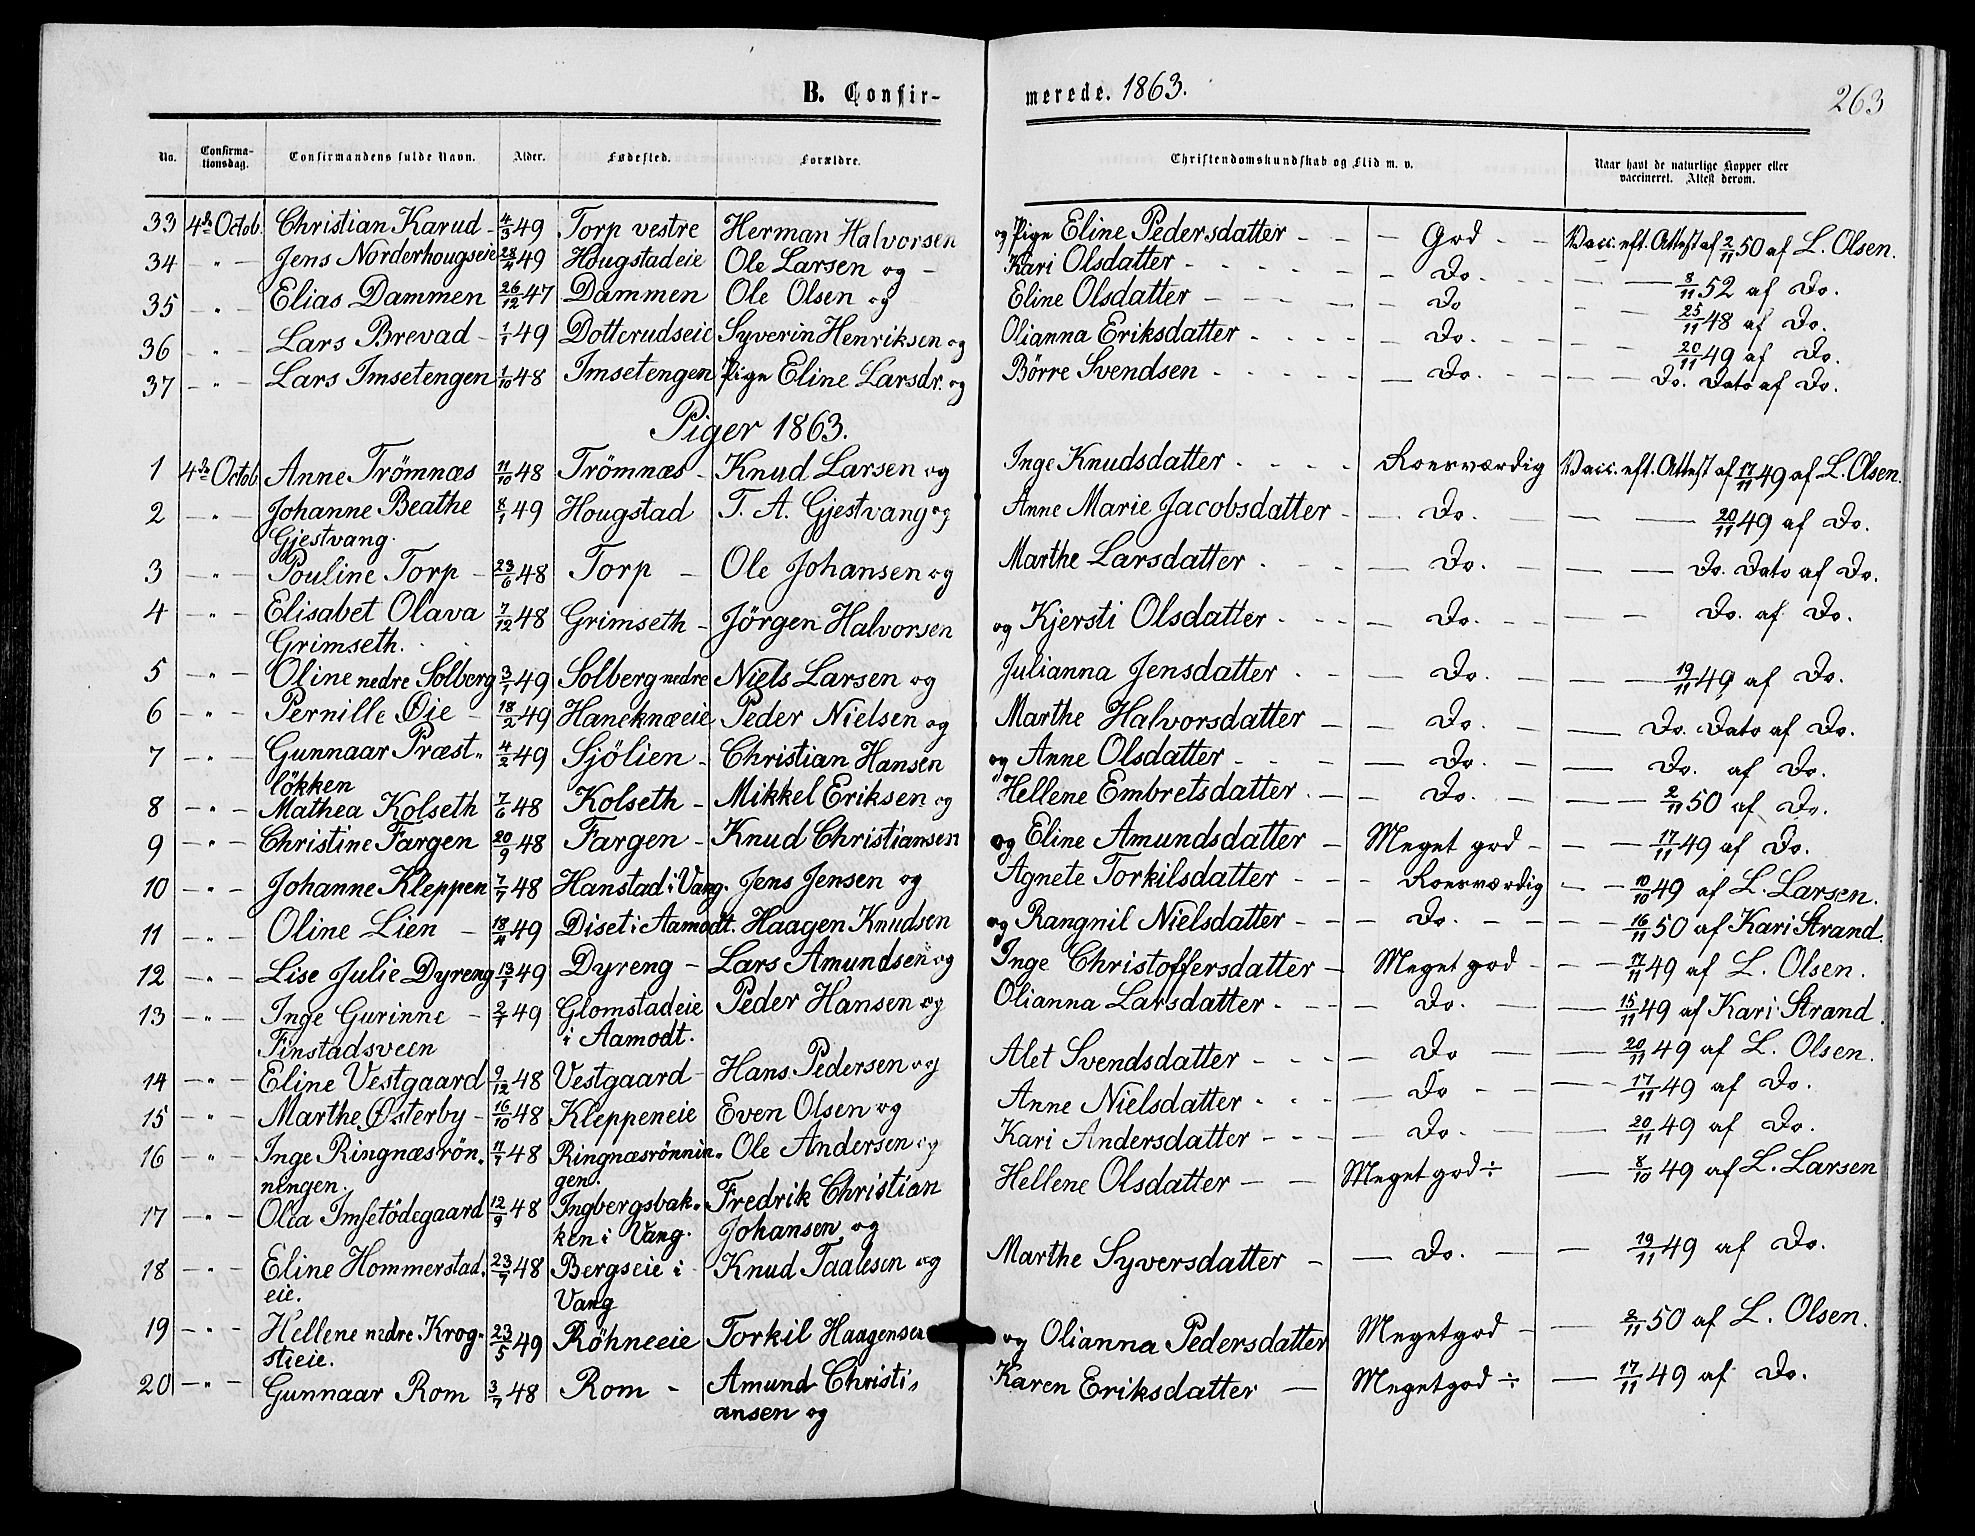 B. Confir- merede. 1863. 263
No. Confirma-tionsdag. Confirmandens fulde Navn. Alder. Fødested. Forældre. Christendomskundskab og Flid m. v. Naar havt de naturlige Kopper eller vaccineret. Attest derom.
33 4de Octob. Christian Karud - 4/3 49 Torp vestre Herman Halvorsen og Pige Eline Pedersdatter - - - God - - Vacc. eft. Attest af 2/11 50 af L. Olsen.
34 - " - Jens Norderhougseie 28/4 49 Hougstadeie Ole Larsen og - Kari Olsdatter - - - - Do. - - - 8/11 52 af Do.
35 - " - Elias Dammen 26/12 47 Dammen Ole Olsen og Eline Olsdatter - - - - Do - - 25/11 48 af Do.
36 - " - Lars Brevad - 1/1 49 Dotterudseie Syverin Henriksen og Olianna Eriksdatter - - - - Do. - - - 20/11 49 af Do.
37 - " - Lars Imsetengen 1/10 48 Imsetengen Pige Eline Larsdr. og Börre Svendsen - - - - Do. - - - Do. Dato af Do.
Piger 1863.
1 4de Octob. Anne Trömnæs 11/10 48 Trömnæs - Knud Larsen og Inge Knudsdatter - - - - Roesværdig Vacc. eft. Attest af 17/11 49 af L. Olsen.
2 - " - Johanne Beathe 8/1 49 Hougstad T. A. Gjestvang og Anne Marie Jacobsdatter - - Do. - - - 20/11 49 af Do.
Gjestvang.
3 - " - Pouline Torp - 23/6 48 Torp - Ole Johansen og Marthe Larsdatter - - - - Do. - - - Do. Dato af Do.
4 - " - Elisabet Olava 7/12 48 Grimseth - Jörgen Halvorsen og Kjersti Olsdatter - - - - Do. - - - Do. af Do.
Grimseth.
5 - " - Oline nedre Solberg 3/1 49 Solberg nedre Niels Larsen og Julianna Jensdatter - - - Do. - - - 19/11 49 af Do.
6 - " - Pernille Øie - 18/2 49 Haneknæeie Peder Nielsen og Marthe Halvorsdatter - - Do. - - Do. Dato af Do.
7 - " - Gunnaar Præst- 4/2 49 Sjölien - Christian Hansen og Anne Olsdatter - - - - Do. - - Do. af Do.
lökken
8 - " - Mathea Kolseth 7/6 48 Kolseth - Mikkel Eriksen og Hellene Embretsdatter - - - Do. - - - 2/11 50 af Do.
9 - " - Christine Fargen 20/9 48 Fargen - Knud Christiansen og Eline Amundsdatter - Meget god - - - 17/11 49 af Do.
10 - " - Johanne Kleppen 7/7 48 Hanstad i Vang. Jens Jensen og Agnete Torkilsdatter - - - Roesværdig - - 10/10 49 af L. Larsen.
11 - " - Oline Lien - 18/4 49 Diset i Aamodt. Haagen Knudsen og Rangnil Nielsdatter - - - Do. - - - - 16/11 50 af Kari Strand.
12 - " - Lise Julie Dyreng 13/1 49 Dyreng - Lars Amundsen og Inge Christoffersdatter - Meget god - - - 17/11 49 af L. Olsen.
13 - " - Inge Gurinne - 2/1 49 Glomstadeie Peder Hansen og Olianna Larsdatter - - - - Do. - - 15/11 49 af Kari Strand.
Finstadsveen i Aamodt.
14 - " - Eline Vestgaard 9/12 48 Vestgaard - Hans Pedersen og Alet Svendsdatter - - - - Do - - 20/11 49 af L. Olsen.
15 - " - Marthe Østerby - 16/10 48 Kleppeneie Even Olsen og Anne Nielsdatter - - - - Do - - - 17/11 49 af Do.
16 - " - Inge Ringnæsrön- 11/7 48 Ringnæsrönnin- Ole Andersen og Kari Andersdatter - - - - Do. - - 20/11 49 af Do.
ningen. gen.
17 - " - Olea Imsetödegaard 12/9 48 Ingbergsbak- Fredrik Christian Hellene Olsdatter - - Meget god ÷ - 8/10 49 af L. Larsen
ken i Vang. Johansen og
18 - " - Eline Hommerstad- 23/7 48 Bergseie i Knud Taalesen og Marthe Syversdatter - - Do. - - 19/11 49 af Do.
eie. Vang
19 - " - Hellene nedre Krog- 23/5 49 Röhneeie Torkil Haagensen og Olianna Pedersdatter Meget god - - 2/11 50 af L. Olsen.
stieie.
20 - " - Gunnaar Rom 3/7 48 Rom - Amund Christi- Karen Eriksdatter - Meget god ÷ - 17/11 49 af Do.
ansen og